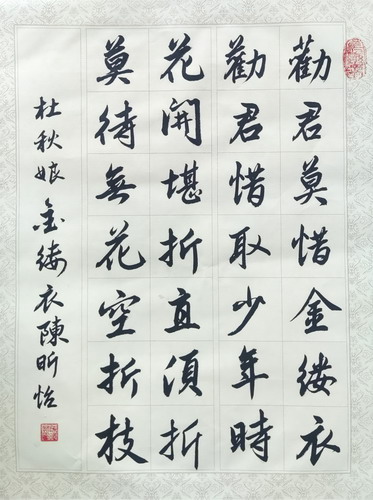 勸君莫惜金縷衣
勸君惜取少年時
花開堪折直須折
莫待無花空折枝
杜秋娘金縷衣陳昕怡